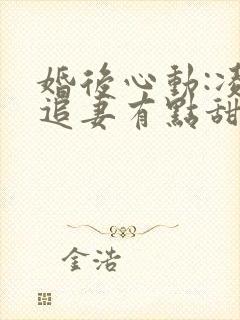 婚後心動:凌
追妻有點甜
金浩